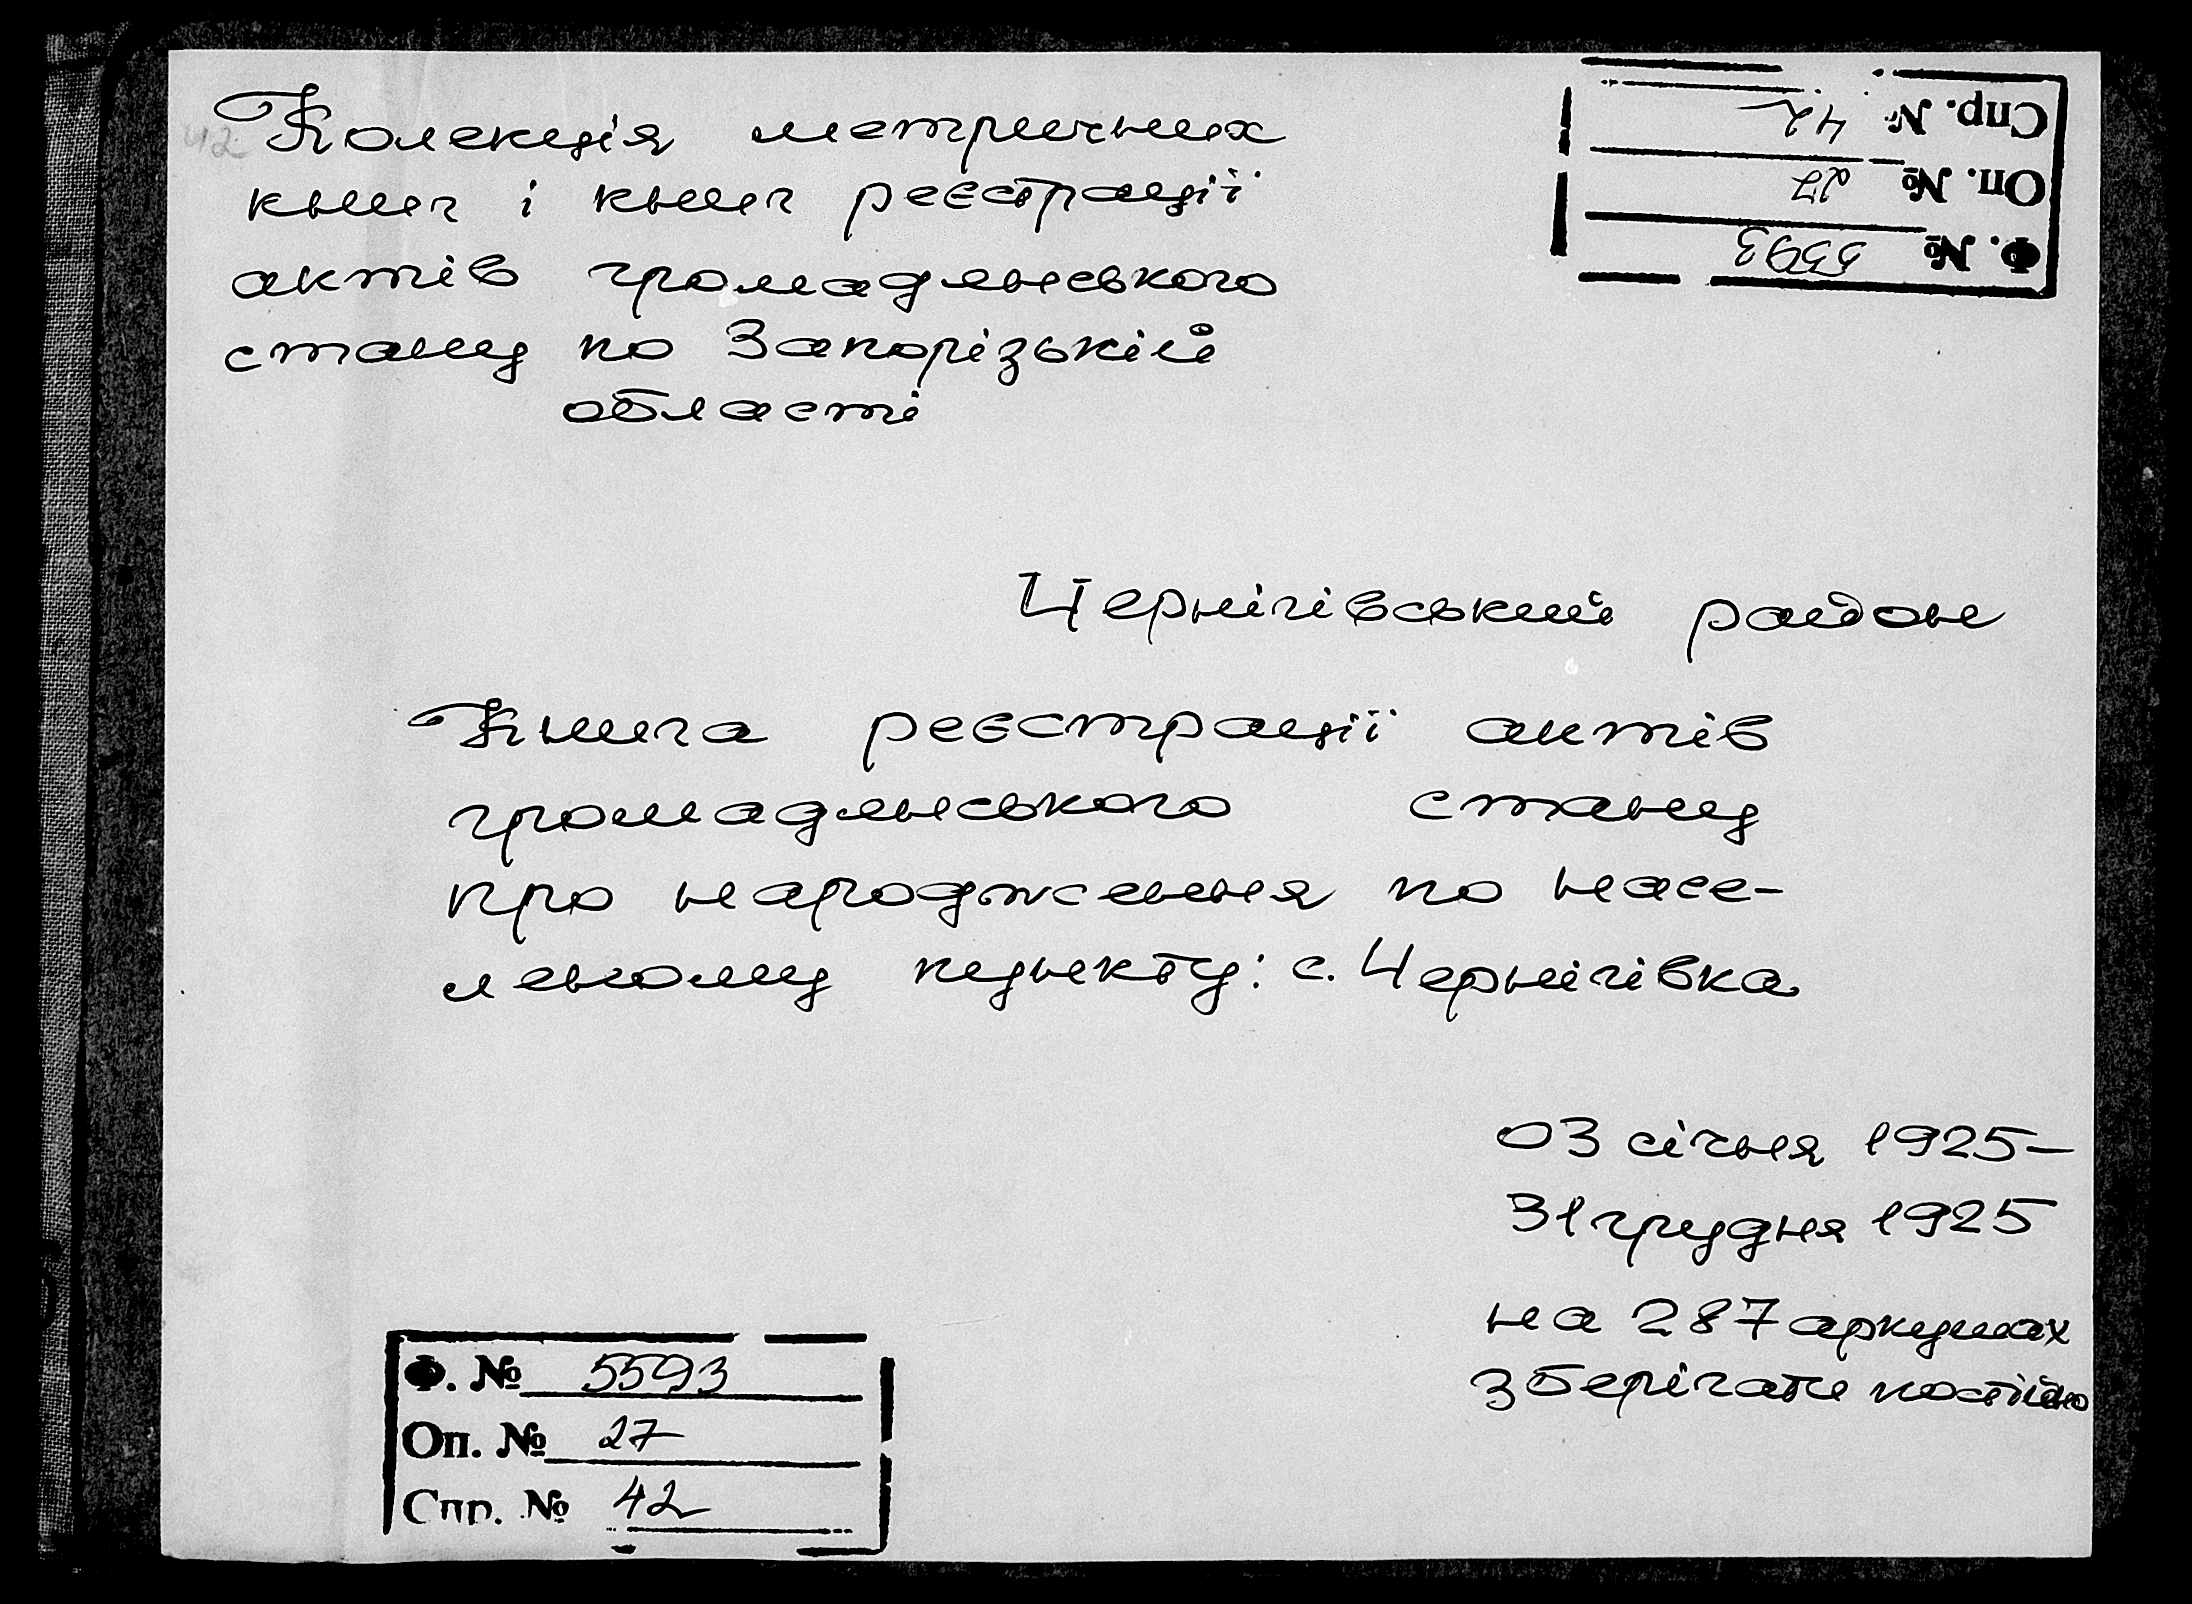 42
Колекція метричних
книг і книг реєстрації
актів громадянського
стану по Запорізькій
області
Ф. № 5593
Оп. № 27
Спр. № 42
Чернігівський район
Книга реєстрації актів
громадянського стану
про народження по насе-
леному пункту: с. Чернігівка
03 січня 1925–
31 грудня 1925
на 287 аркушах
зберігати постійно
Ф. № 5593
Оп. № 27
Спр. № 42